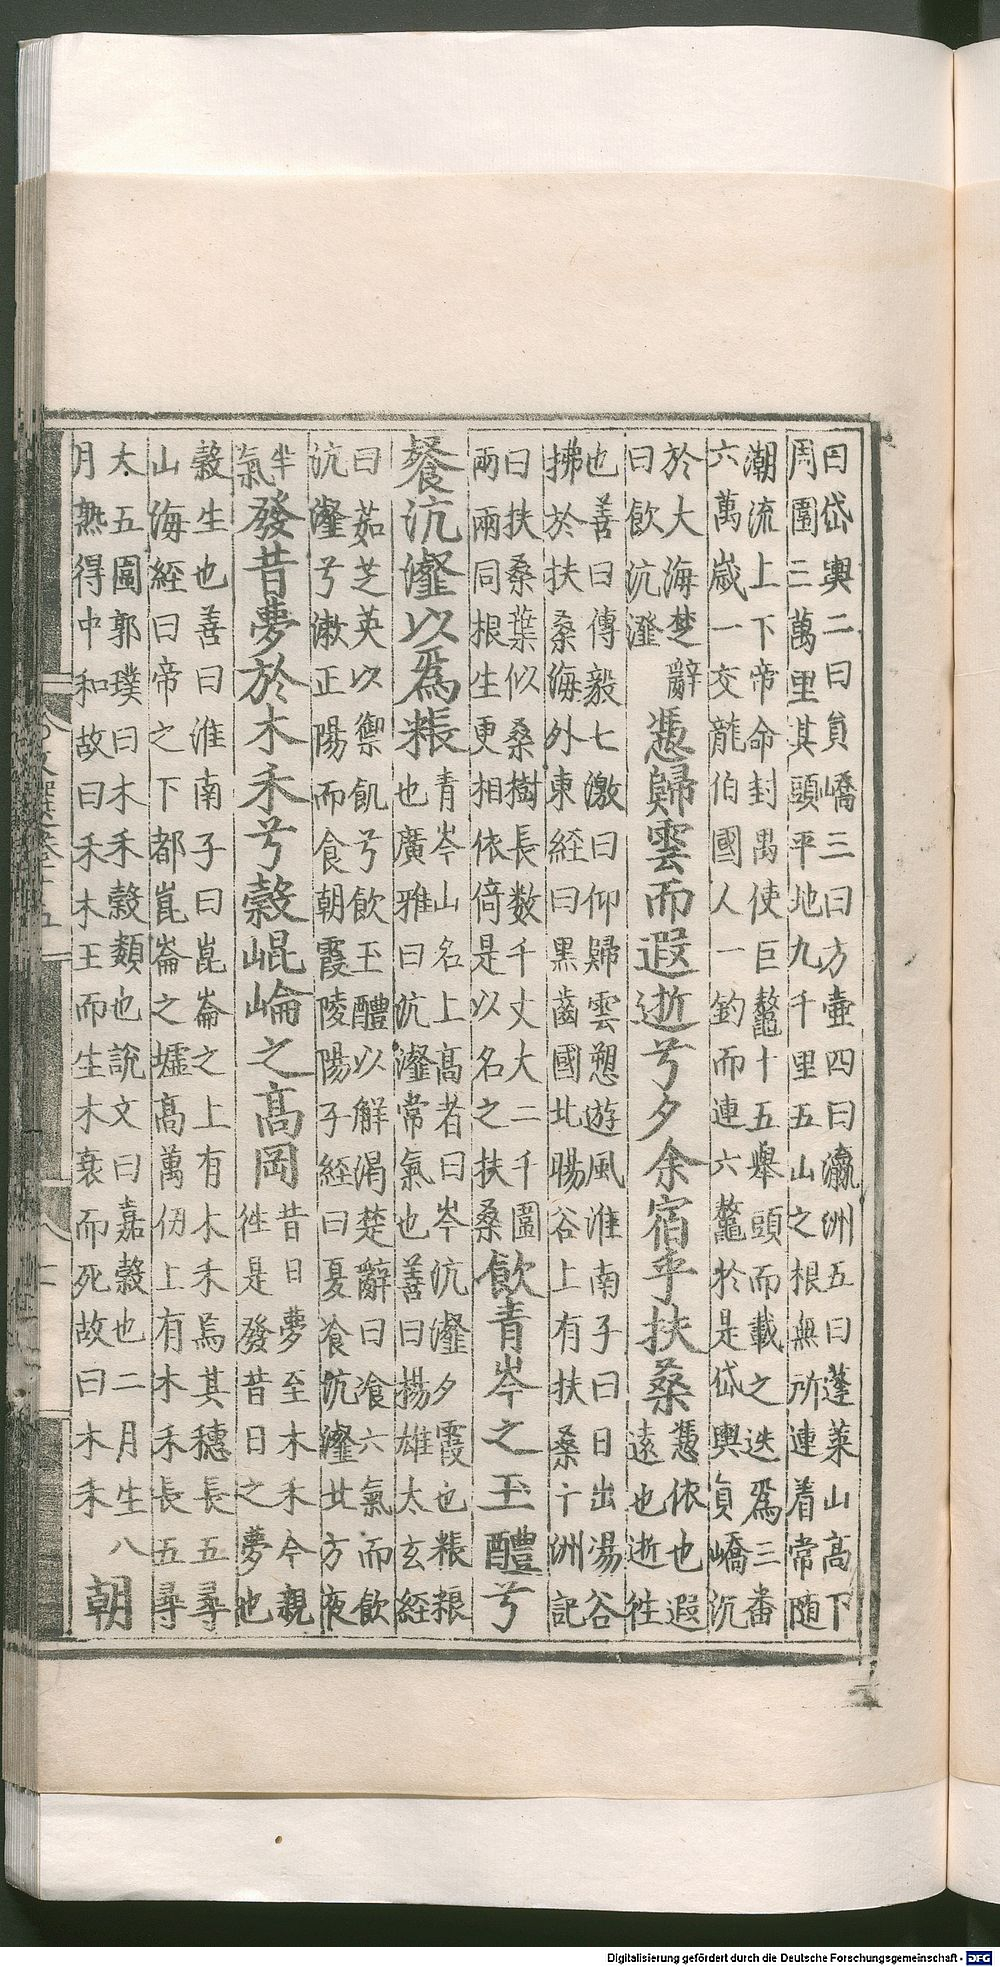 曰岱輿二曰員嶠三曰方壷四曰瀛洲五曰蓬莱山高下
周圍三萬里其頭平地九千里五山之根無所連着常随
潮流上下帝命封禺使巨鼇十五舉頭而載之迭爲三番
六萬歳一交龍伯國人一釣而連六鼇扵是岱輿員嶠沉
於大海楚辭
曰飲沆瀣
憑歸雲而遐逝兮夕余宿乎扶桑
憑依也遐
遠也逝徃
也善曰傳毅七激曰仰歸雲愬遊風淮南子曰日出暘谷
拂於扶桑海外東經曰黒齒國北暘谷上有扶桑十洲記
曰扶桑葉似桑樹長数千丈大二千圍
兩兩同根生更相依倚是以名之扶桑
飲青岑之玉醴兮
餐沆瀣以爲粻
青岑山名上高者曰岑沆瀣夕霞也粻粮
也廣雅曰沆瀣常氣也善曰揚雄太玄經
曰茹芝英以禦飢兮飲玉醴以解渇楚辭曰飡六氣而飲
沆瀣兮漱正陽而食朝霞陵陽子經曰夏飡沆瀣北方夜
半
氣
發昔夢於木禾兮榖崐崘之髙岡
昔日夢至木禾今親
徃是發昔日之夢也
榖生也善曰淮南子曰崑崙之上有木禾焉其穗長五尋
山海經曰帝之下都崑崙之墟髙萬仞上有木禾長五尋
太五圍郭璞曰木禾榖類也說文曰嘉榖也二月生八
月熟得中和故曰禾木王而生木衰而死故曰木禾
朝
Digitalisierung gefördert durch die Deutsche Forschungsgemeinschaft - DFG